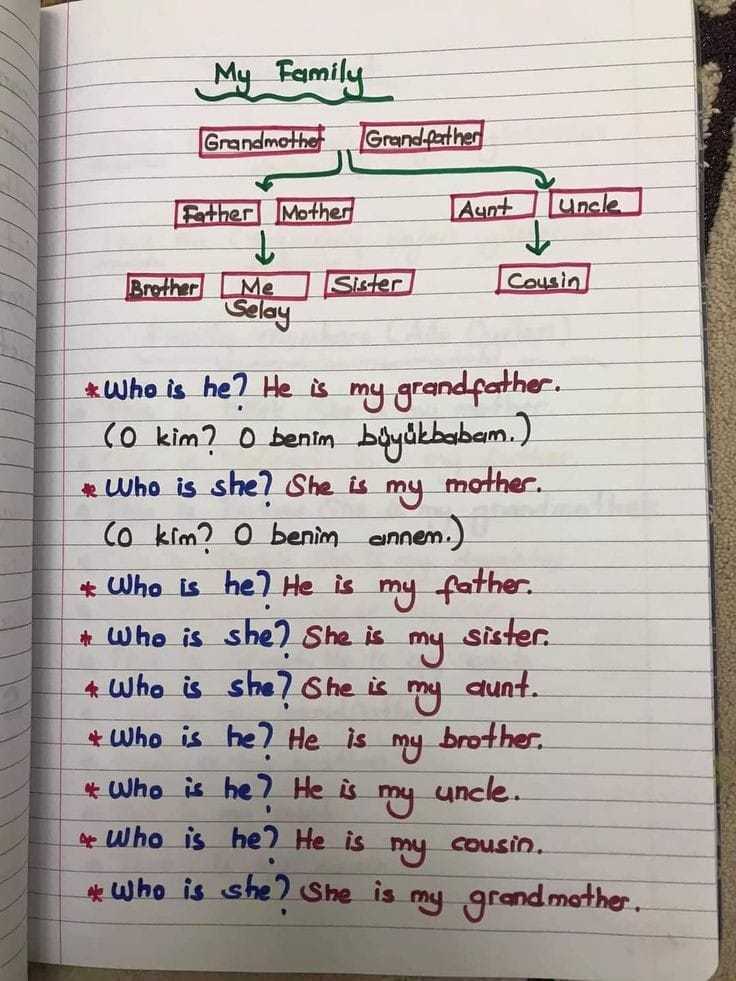 My Family
Grandmother Grandfather
Father Mother Aunt Uncle
Brother Me Sister Cousin
Selay
* Who is he? He is my grandfather.
(O kim? O benim büyükbabam.)
* Who is she? She is my mother.
(O kim? O benim annem.)
* Who is he? He is my father.
* Who is she? She is my sister.
* Who is she? She is my aunt.
* Who is he? He is my brother.
* Who is he? He is my uncle.
* Who is he? He is my cousin.
* Who is she? She is my grandmother.